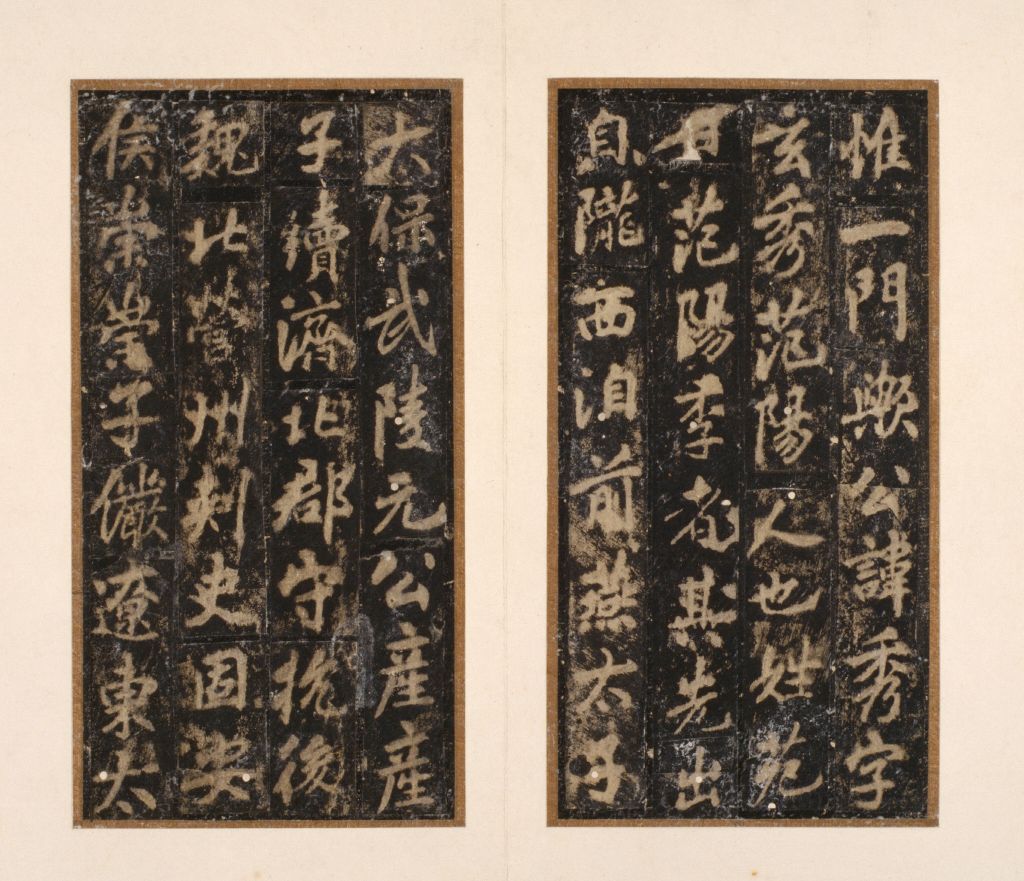 惟一門歟公諱秀字
玄秀范陽人也姓苑
曰范陽李者其先出
自隴西洎前燕太子
太保武陵元公産産
子續濟北郡守抗後
魏北營州刺史固安
侯崇崇子儼遼東太